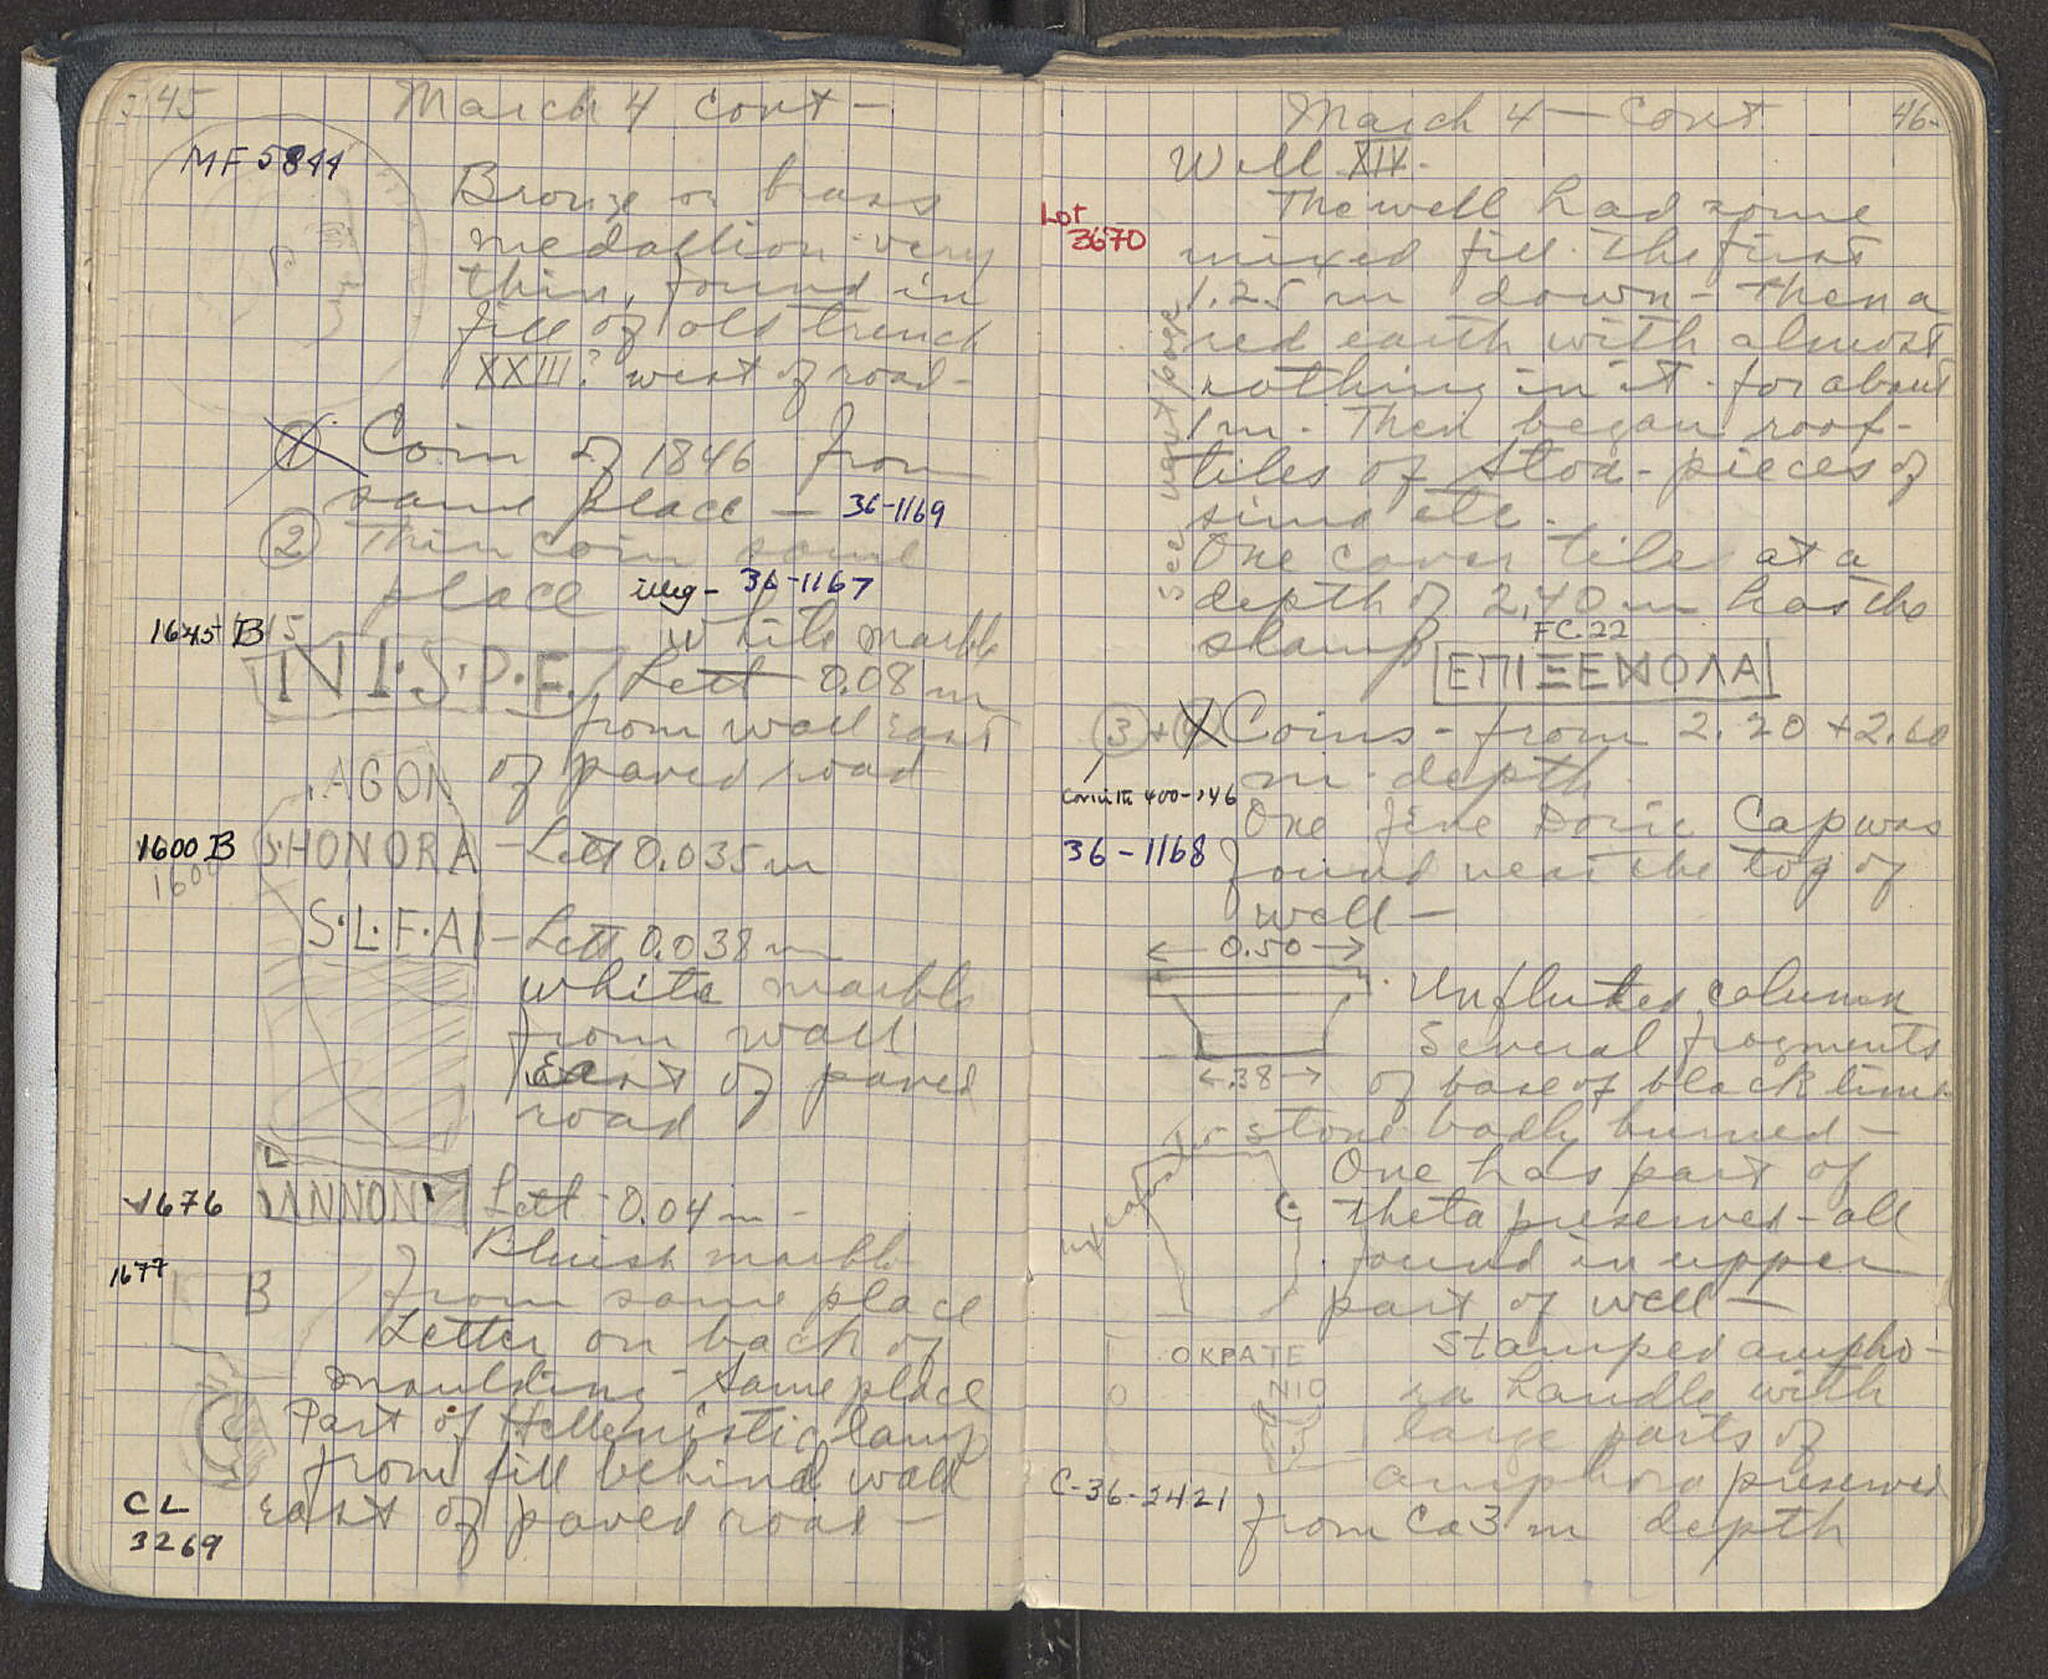 45
March 4 cont —
MF 5844
Bronze or brass
medallion very
thin, found in
fill of old trench
XXIII? west of road-
1 Coin of 1846 from
same place — 36-1169
2 Thin coin same
place illeg- 36-1167
1645 B
NI·S·P·F
White marble
Lett 0.08 m
from wall east
of paved road
AGON
1600 B
1600
S·HONORA — Lett 0.035 m
S·L·F·A — Lett 0.038 m
white marble
from wall
East of paved
road
1676
ANNON Lett 0.04 m -
Bluish marble
1677
B from same place
Letter on back of
moulding - Same place
Part of Hellenistic lamp
from fill behind wall
East of paved road —
CL
3269
March 4 — Cont
46-
Well XIV.
Lot
3670
The well had some
mixed fill. The first
1.25 m down - then a
red earth with almost
nothing in it - for about
1 m. Then began roof-
tiles of Stoa - pieces of
sima etc.
See next page
One cover tile at a
depth of 2,40 m has the
stamp
FC.22
ΕΠΙΞΕΝΟΛΑ
3 + 4 Coins - from 2.20 + 2.60
m. depth
Corinth 400-146
36-1168
One fine Doric Cap was
found near the top of
well —
0.50
Unfluted column
.38
Several fragments
of base of black lime
stone badly burned —
One has part of
theta preserved - all
found in upper
part of well —
ΟΚΡΑΤΕ
ΝΙΟ
Stamped ampho-
ra handle with
large parts of
amphora preserved
C-36-2421
from Ca 3 m depth